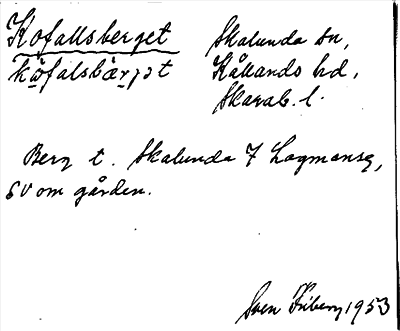 Kofallsberget
kòfalsbàrjət
Skalunda sn,
Kållands hd,
Skarab. l.
Berg t. Skalunda 7 Lagmansg,
SV om gården.
Sven Friberg 1953